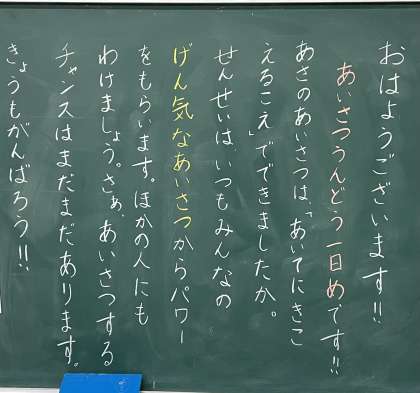 おはようございます!!
あいさつうんどう一日めです!!
あさのあいさつは、「あいてにきこ
えるこえ」でできましたか。
せんせいは、いつもみんなの
げん気なあいさつからパワー
をもらいます。ほかの人にも
わけましょう。さぁ、あいさつする
チャンスはまだまだあります。
きょうもがんばろう!!